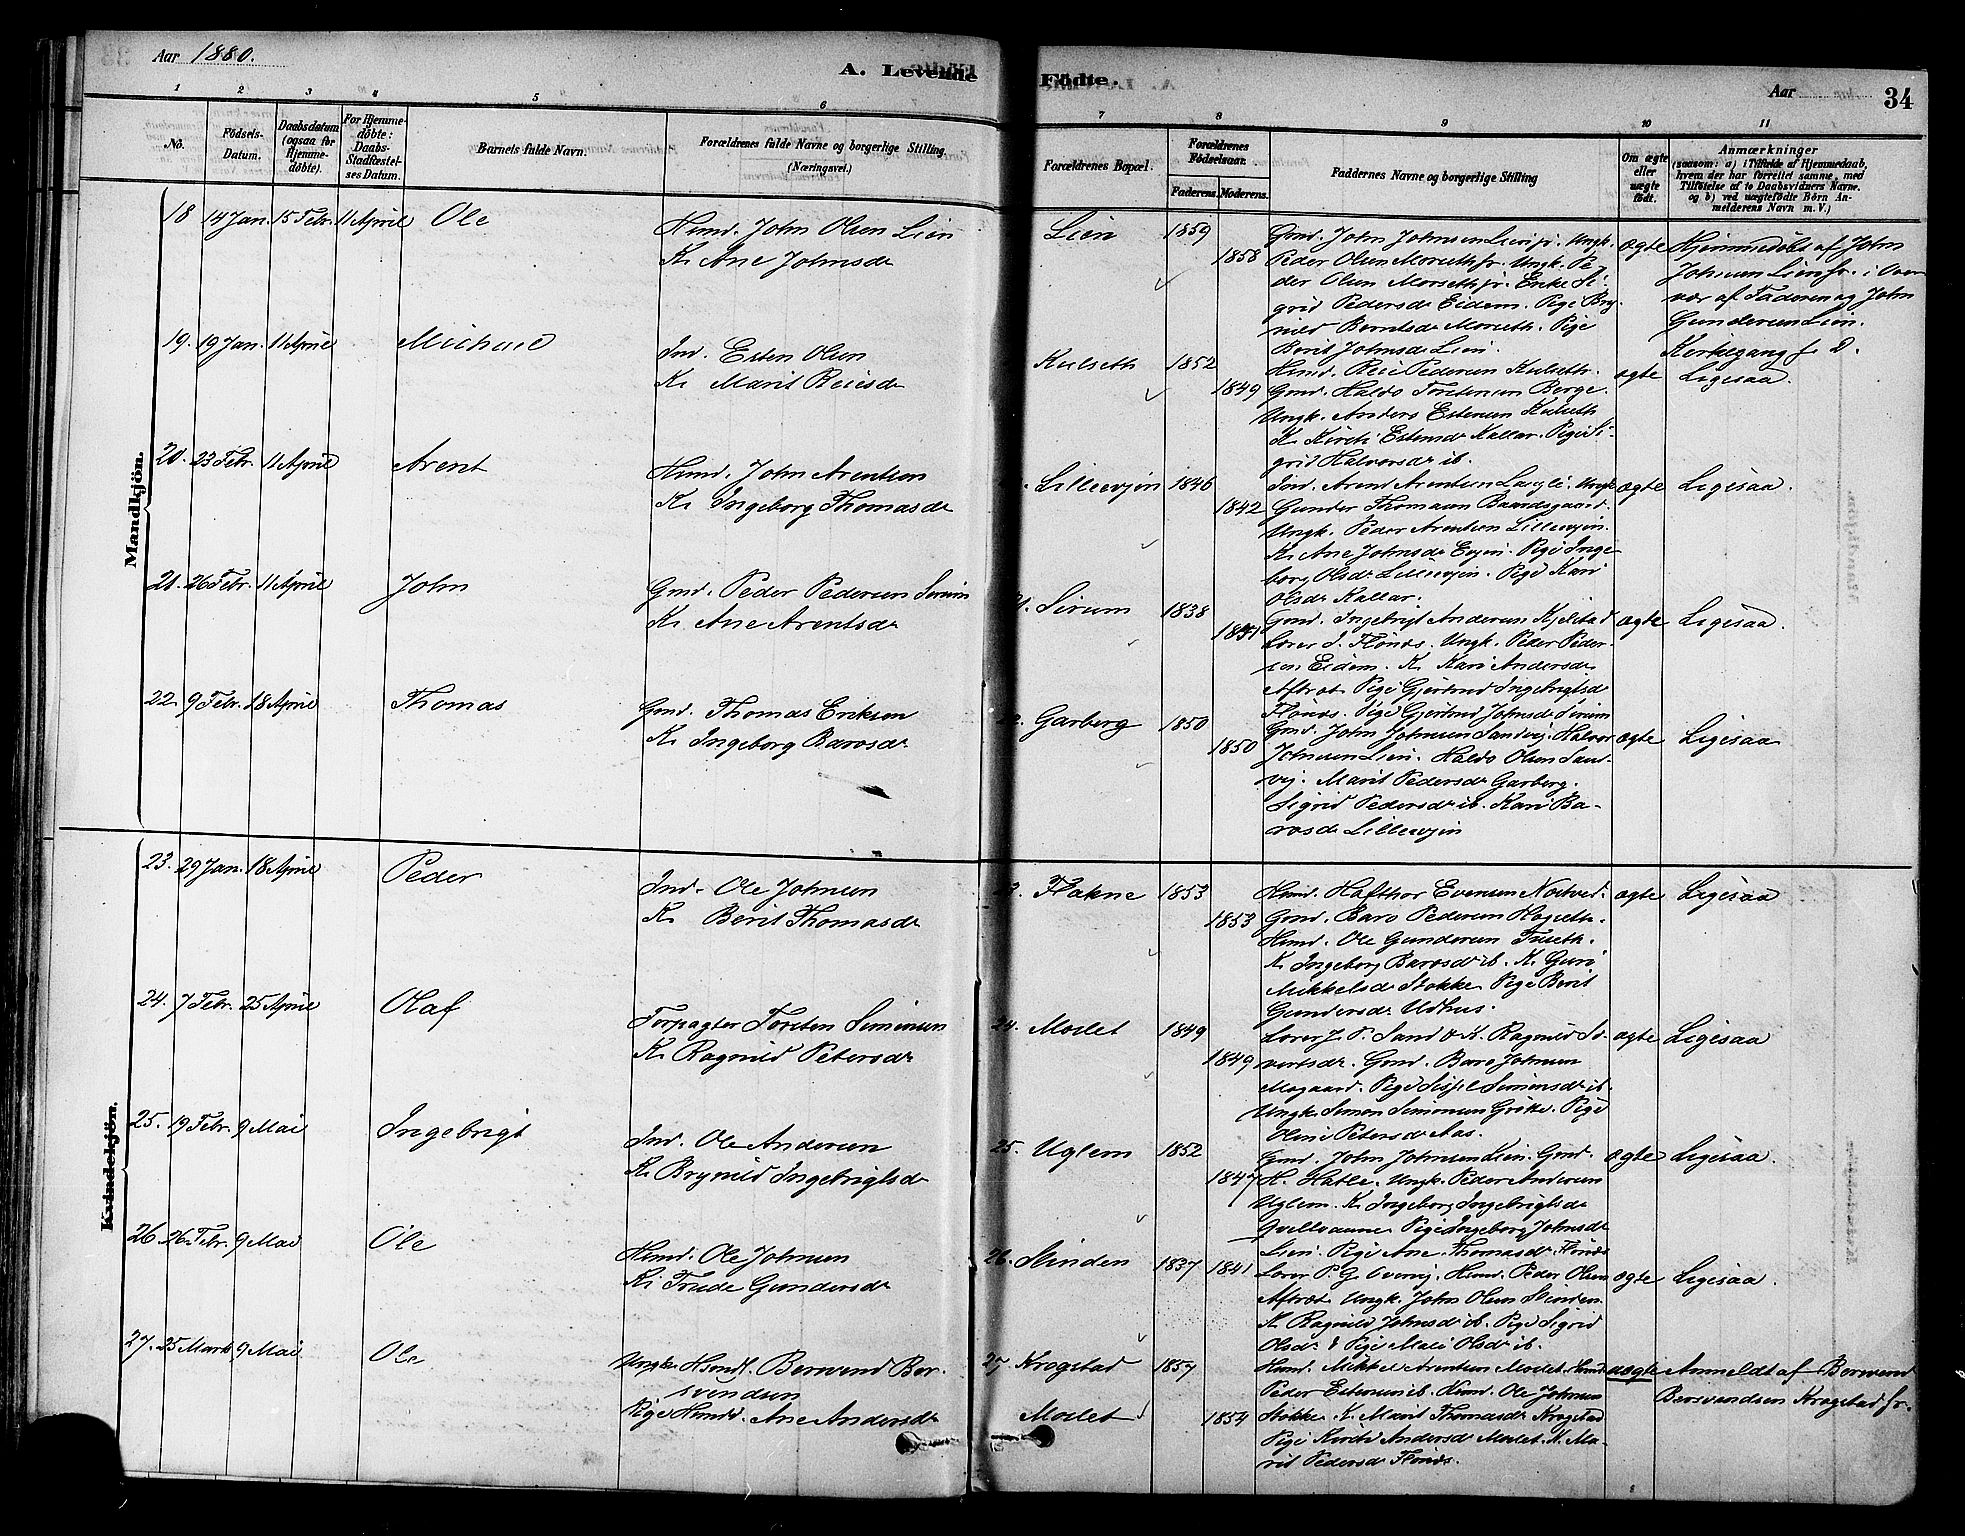 Aar 1880.
A. Levende Födte.
Aar
34
1 2 3 4 5 6 7 8 9 10 11
No.
Födsels-Datum.
Daabsdatum (ogsaa for Hjemmedöbte).
For Hjemmedöbte: Daabs-Stadfæstelses Datum.
Barnets fulde Navn.
Forældrenes fulde Navne og borgerlige Stilling (Næringsvei.)
Forældrenes Bopæl.
Forældrenes Födselsaar.
Faderens. Moderens.
Faddernes Navne og borgerlige Stilling
Om ægte eller uægte födt.
Anmærkninger
(saasom: a) i Tilfælde af Hjemmedaab, hvem der har forrettet samme, med Tilföielse af to Daabsvidners Navne. og b) ved uægtefödte Börn Anmelderens Navn m. V.)
Mandkjön.
18 14 Jan. 15 Febr. 11 April Ole
Hmd. John Olsen Lien
K. Ane Johnsdr
Lien 1859
1858
Gmd. John Johnsen Lien jr. Ungk.
Peder Olsen Morseth sr. Ungk. Pe-
der Olsen Morseth jr. Enke Si-
grid Pedersdr Eidem. Pige Bry-
nild Berntsdr Morseth. Pige
Berit Johnsdr Lien.
ægte
Hjemmedöbt af John
Johnsen Lien sr. i Over-
vær af Faderen og John
Gundersen Lien.
Kirkegang f. D.
19. 19 Jan. 11 April Michael
Ind. Esten Olsen
K. Marit Reiesdr
Kulseth 1852
1849
Hmd. Reie Pedersen Kulseth.
Gmd. Haldo Torstensen Berge.
Ungk. Anders Estensen Kulseth
K. Kirsti Estensdr Kallar. Pige Si-
grid Halvorsdr ib.
ægte Ligesaa.
20. 23 Febr. 11 April Arent
Hmd. John Arentsen
K. Ingeborg Thomasdr
Lillevjen 1846
1842
Ind. Arent Arentsen Lavli. Ungk
Gunder Thomasen Baardsgaard.
Ungk. Peder Arentsen Lillevjen.
K. Ane Johnsdr Evjen. Pige Inge-
borg Olsdr Lillevjen. Pige Kari
Olsdr Kallar.
ægte Ligesaa.
21. 26 Febr. 11 April John
Gmd. Peder Pedersen Sirum
K. Ane Arentsdr
21. Sirum 1838
1841
Gmd. Ingebrigt Andersen Kjelstad
Lærer J. Flönes. Ungk. Peder Peder-
sen Eidem. K. Kari Andersdr
Aftræt. Pige Gjertrud Ingebrigtsdr
Flönes. Pige Gjertrud Johnsdr Sirum
ægte Ligesaa.
22. 9 Febr. 18 April Thomas
Gmd. Thomas Eriksen
K. Ingeborg Barosdr
22. Garberg 1850
1850
Gmd. John Johnsen Sandvej. Halvor
Johnsen Lien. Haldo Olsen Sand-
vej. Marit Pedersdr Garberg.
Sigrid Pedersdr ib. Kari Ba-
rosdr Lillevjen
ægte Ligesaa
Kvindekjön.
23. 29 Jan. 18 April Peder
Ind. Ole Johnsen
K. Berit Thomasdr
23. Flakne 1853
1853
Hmd. Hafthor Evensen Norvod.
Gmd. Baro Pedersen Hogseth.
Hmd. Ole Gundersen Fuseth.
K. Ingeborg Barosdr ib. K. Guri
Mikkelsdr Stokke. Pige Berit
Gundersdr Udhus.
ægte Ligesaa
24. 7 Febr. 25 April Olaf
Forpagter Torsten Simonsen
K. Ragnild Petersdr
24. Moslet 1849
1849
Lærer J. P. Sand & K. Ragnild Si-
vertsdr. Gmd. Baro Johnsen
Mogaard. Pige Sissel Simonsdr ib.
Ungk. Simon Simonsen Grötte. Pige
Oline Petersdr Aas.
ægte Ligesaa
25. 19 Febr. 9 Mai Ingebrigt
Ind. Ole Andersen
K. Brynild Ingebrigtsdr
25. Uglem 1852
1847
Gmd. John Johnsen Lien. Gmd.
H. Hatle. Ungk. Peder Andersen
Uglem. K. Ingeborg Ingebrigtsdr
Qvellovanne. Pige Ingeborg Johnsdr
Lien. Pige Ane Thomasdr Flönes
ægte Ligesaa.
26. 26 Febr. 9 Mai Ole
Hmd. Ole Johnsen
K. Trude Gundersdr
26. Slinden 1837 1841
Lærer P. G. Overvig. Hmd. Peder Olsen
Aftræt. Ungk. John Olsen Slinden.
K. Ragnild Johnsdr ib. Pige Sigrid
Olsdr & Pige Mali Olsdr ib.
ægte Ligesaa.
27. 25 Marts 9 Mai Ole
Ungk. Hsmdf. Bersvend Ber-
svendsen
Pige Hsmdd. Ane Andersdr
27 Krogstad 1857
Moslet 1854
Hsmd. Mikkel Arentsen Moslet. Hsmd
Peder Estensen ib. Hsmd. Ole Johnsen
Stokke. K. Marit Thomasdr Krogstad
Pige Kirsti Andersdr Moslet. K. Ma-
rit Pedersdr Flönes.
uægte Anmeldt af Bersvend
Bersvendsen Krogstad sr.